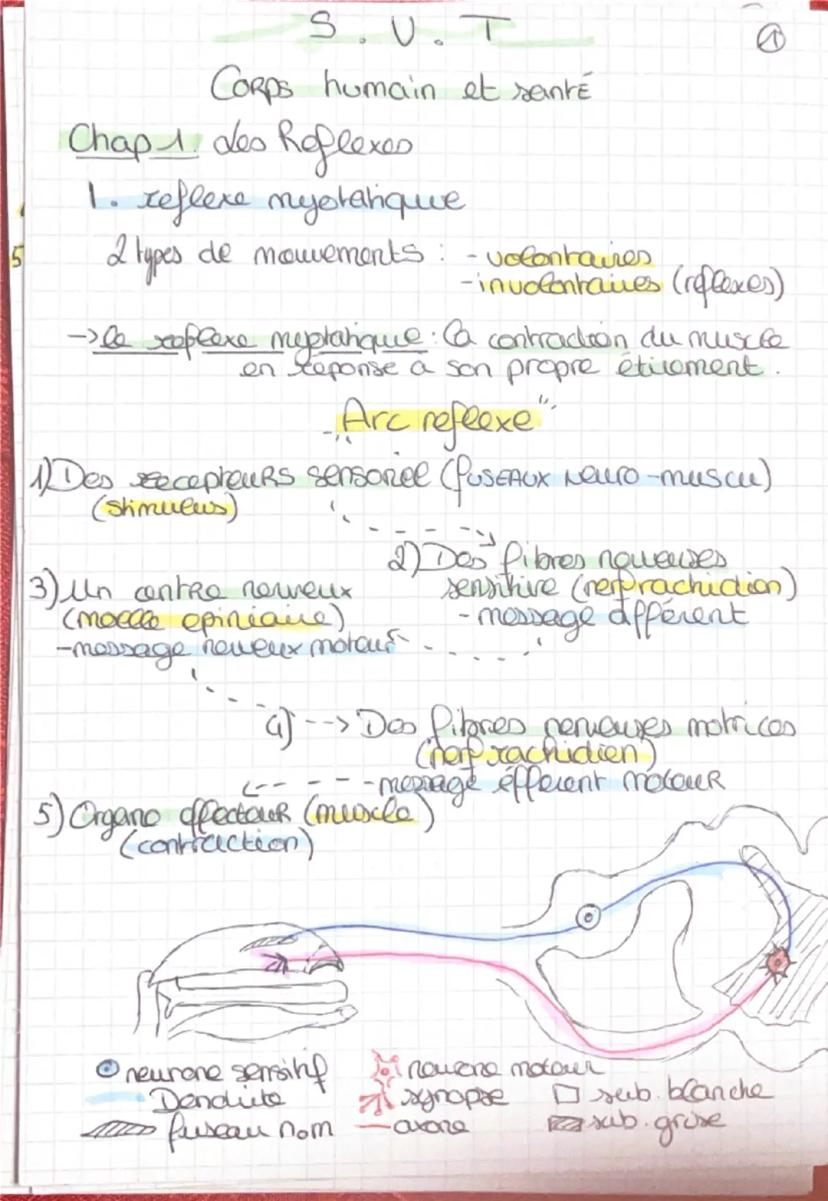 S.V.T
①
Corps humain et santé
Chap 1. des Reflexes
1. reflexe myotatique
2 types de mouvements : - volontaires
- involontaires (reflexes)
-> le reflexe myotatique : la contraction du muscle
en réponse a son propre étirement.
"Arc reflexe"
1) Des recepteurs sensoriel (fuseaux neuro-muscu)
(stimulus)
2) Des fibres nerveuses
sensitive (nerf rachidien)
- message afférent
3) Un centre nerveux
(moelle epiniaire)
- message nerveux moteur
4) --> Des fibres nerveuses motrices
(nerf rachidien)
- message éfferent moteur
5) Organe effecteur (muscle)
(contraction)
neurone sensitif
Dendrite
fuseau nom
neurone moteur
synapse
axone
sub. blanche
sub. grise